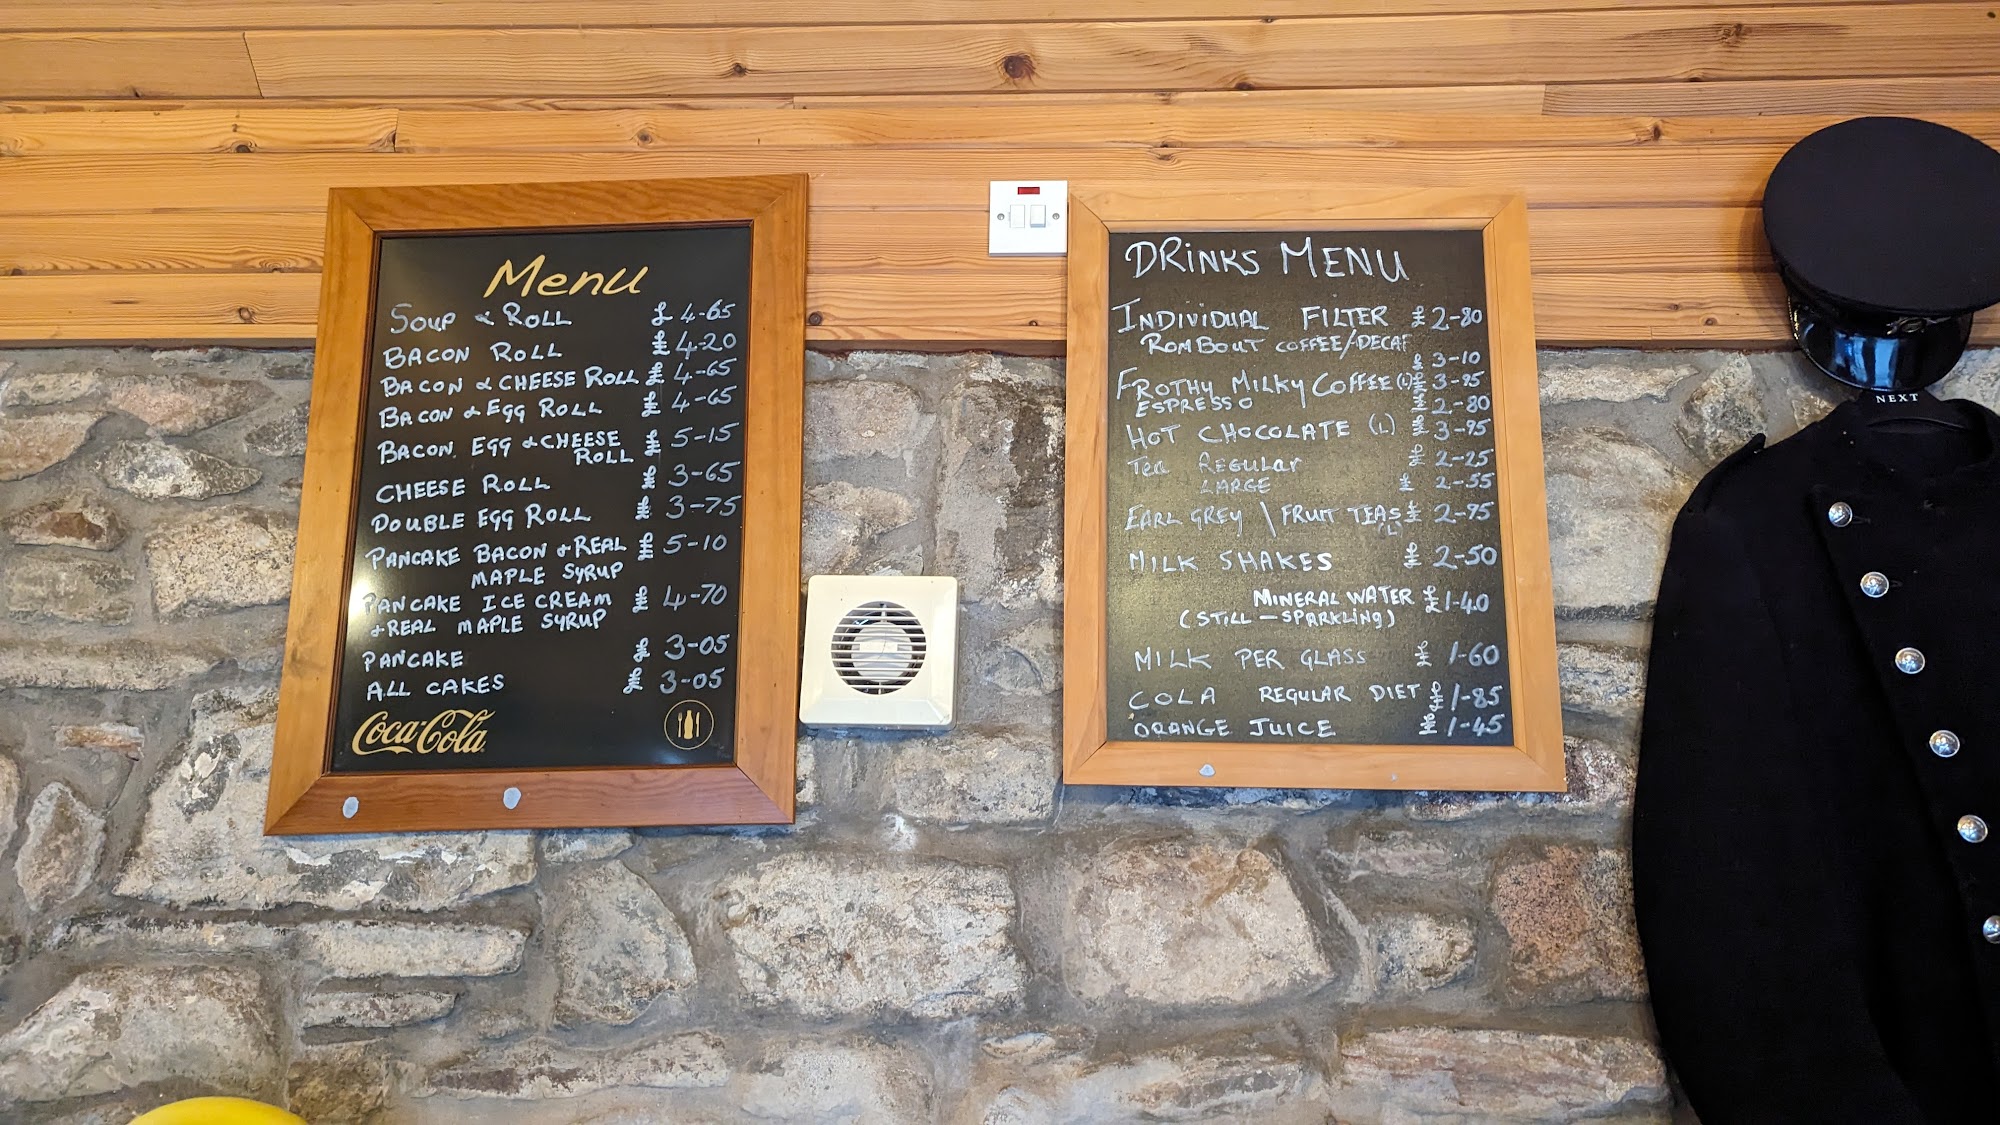 Menu
SOUP & ROLL £ 4-65
BACON ROLL £ 4-20
BACON & CHEESE ROLL £ 4-65
BACON & EGG ROLL £ 4-65
BACON, EGG & CHEESE £ 5-15
ROLL
CHEESE ROLL £ 3-65
DOUBLE EGG ROLL £ 3-75
PANCAKE BACON & REAL £ 5-10
MAPLE SYRUP
PANCAKE ICE CREAM £ 4-70
& REAL MAPLE SYRUP
PANCAKE £ 3-05
ALL CAKES £ 3-05
Coca-Cola
DRINKS MENU
INDIVIDUAL FILTER £ 2-80
ROMBOUT COFFEE/DECAF
£ 3-10
FROTHY MILKY COFFEE (L) £ 3-95
ESPRESSO £ 2-80
HOT CHOCOLATE (L) £ 3-95
Tea REGULAR £ 2-25
LARGE £ 2-55
EARL GREY \ FRUIT TEAS £ 2-95
(L)
MILK SHAKES £ 2-50
MINERAL WATER £1-40
(STILL — SPARKLING)
MILK PER GLASS £ 1-60
COLA REGULAR DIET £ 1-85
ORANGE JUICE £ 1-45
NEXT